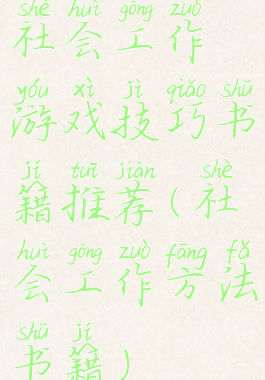 shè huì gōng zuò
社会工作
yóu xì jì qiǎo shū
游戏技巧书
jí tuī jiàn shè
籍推荐(社
huì gōng zuò fāng fǎ
会工作方法
shū jí
书籍)